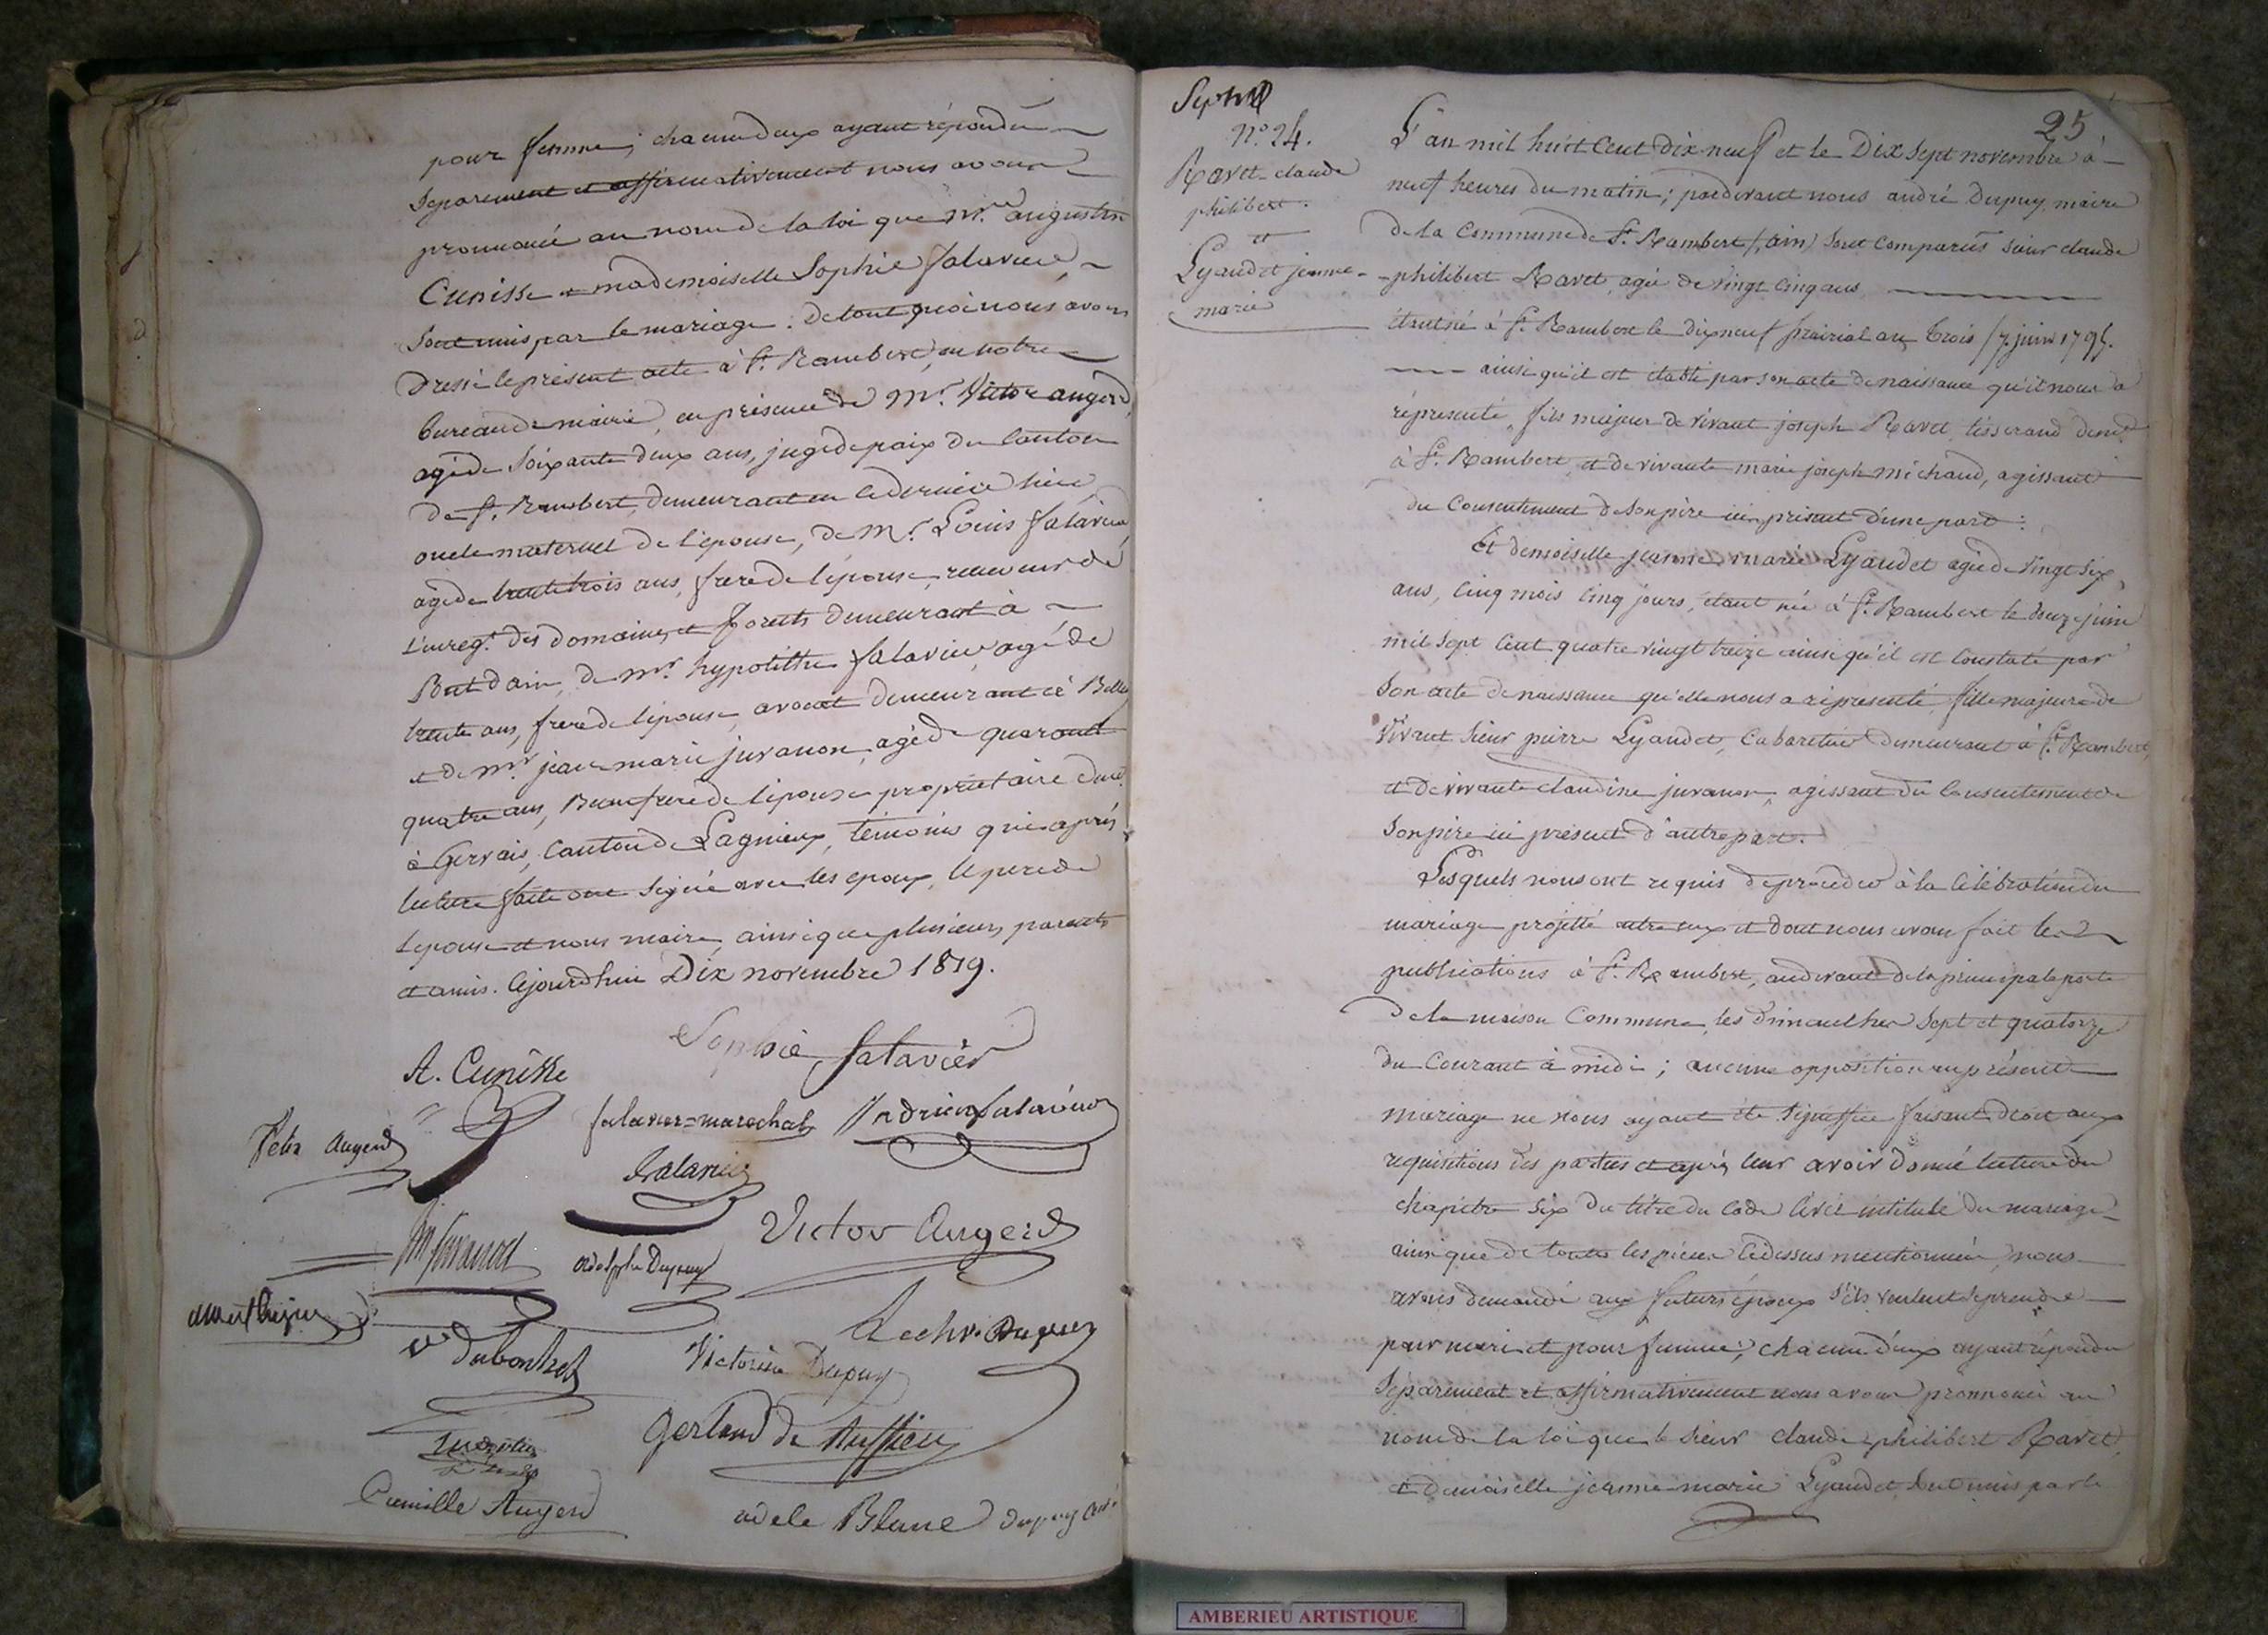 pour femme; chacun deux ayant répondu
Separement et affirmativement nous avons
prononcé au nom de la loi que Mr. augustin
Cunisse et mademoiselle Sophie falavier
Sont unis par le mariage. de tout quoi nous avons
Dressé le présent acte à St. Rambert, en notre
bureau de mairie, en présence de Mr. Victor augerd,
agé de Soixante deux ans, juge de paix du Canton
de St. Rambert, demeurant en ce dernier lieu,
oncle maternel de l'épouse, de Mr. Louis falavier
agé de trente trois ans, frere de l'épouse, receveur de
l'enreg.t des domaines et forets demeurant à
Pont dain, de Mr. hypolitte falavier agé de
trente ans, frere de l'épouse, avocat demeurant à Belley
et de Mr. jean marie juvanon, agé de quarante
quatre ans, Beaufrere de l'épouse propriétaire dem.t
à Gervais, Canton de Lagnieux, témoins qui après
lecture faite ont Signé avec les epoux, le pere de
lepouse et nous maire, ainsi que plusieurs parents
et amis. Cejourdhui Dix novembre 1819.
Sophie falavier
A. Cunisse
falavier=marechal Adrien falavier
Felix Augerd
falavier
Victor Augerd
adolphe Dupuy
Dupuy
Victorine Dupuy
Gerland de
Camille Augerd
adele Blanc Dupuy
25
N.o 24.
Ravet claude
philibert.
et
Lyaudet jeanne-
marie
L'an mil huit Cent dix neuf et le Dix Sept novembre à
neuf heures du matin; pardevant nous andré Dupuy, maire
de la Commune de St. Rambert (ain) Sont comparus Sieur claude
-philibert Ravet, agé de vingt cinq ans
étant né à St. Rambert le dix neuf prairial an trois (7. juin 1795.
ainsi qu'il est établi par son acte de naissance qu'il nous a
représenté, fils majeur de vivant joseph Ravet, tisserand dem.t
à St. Rambert, et de vivante marie joseph michaud, agissant
du Consentement de Son père ici présent d'une part:
Et demoiselle jeanne marie Lyaudet agée de vingt Six
ans, Cinq mois Cinq jours, étant née à St. Rambert le douze juin
mil Sept Cent quatre vingt treize ainsi qu'il est Constaté par
Son acte de naissance qu'elle nous a représenté, fille majeure de
vivant Sieur pierre Lyaudet, Cabaretier demeurant à St. Rambert,
et de vivante claudine juvanon, agissant du Consentement de
Son père ici présent d'autre part.
Lesquels nous ont requis de procéder à la Célébration du
mariage projetté entre eux et dont nous avons fait les 2
publications à St. Rambert, audevant de la principale porte
De la maison Commune, les dimanches Sept et quatorze
du Courant à midi; aucune opposition au présent
mariage ne nous ayant été Signiffiée faisant droit aux
requisitions des parties et après leur avoir donné lecture du
chapitre Six du titre du Code Civil intitulé du mariage
ainsi que de toutes les pièces Cidessus mentionnées, nous
avons demandé aux futurs époux s'ils veulent Se prendre
pour mari et pour femme; chacun d'eux ayant répondu
Séparement et affirmativement nous avons prononcé au
nom de la loi que le Sieur claude philibert Ravet,
et demoiselle jeanne marie Lyaudet Sont unis par le
AMBERIEU ARTISTIQUE